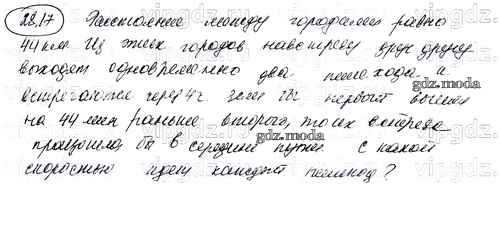 28.17 Расстояние между городами равно
44 км Из этих городов навстречу друг другу
выходят одновременно два пешехода и
встречаются через 4ч если бы первый вышел
на 44 мин раньше второго, то их встреча
произошла бы в середине пути. С какой
скоростью идет каждый пешеход?
gdz.moda
gdz.moda
gdz.moda